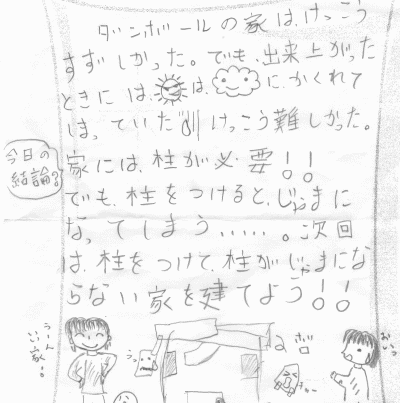 ダンボールの家は、けっこう
すずしかった。でも、出来上がった
ときには、は、にかくれて
しまっていた けっこう難しかった。
今日の
結論?
家には、柱が必要!!
でも、柱をつけると、じゃまに
なってしまう……。次回
は、柱をつけて、柱がじゃまにな
らない家を建てよう!!
うーん
いい家!
おいっ